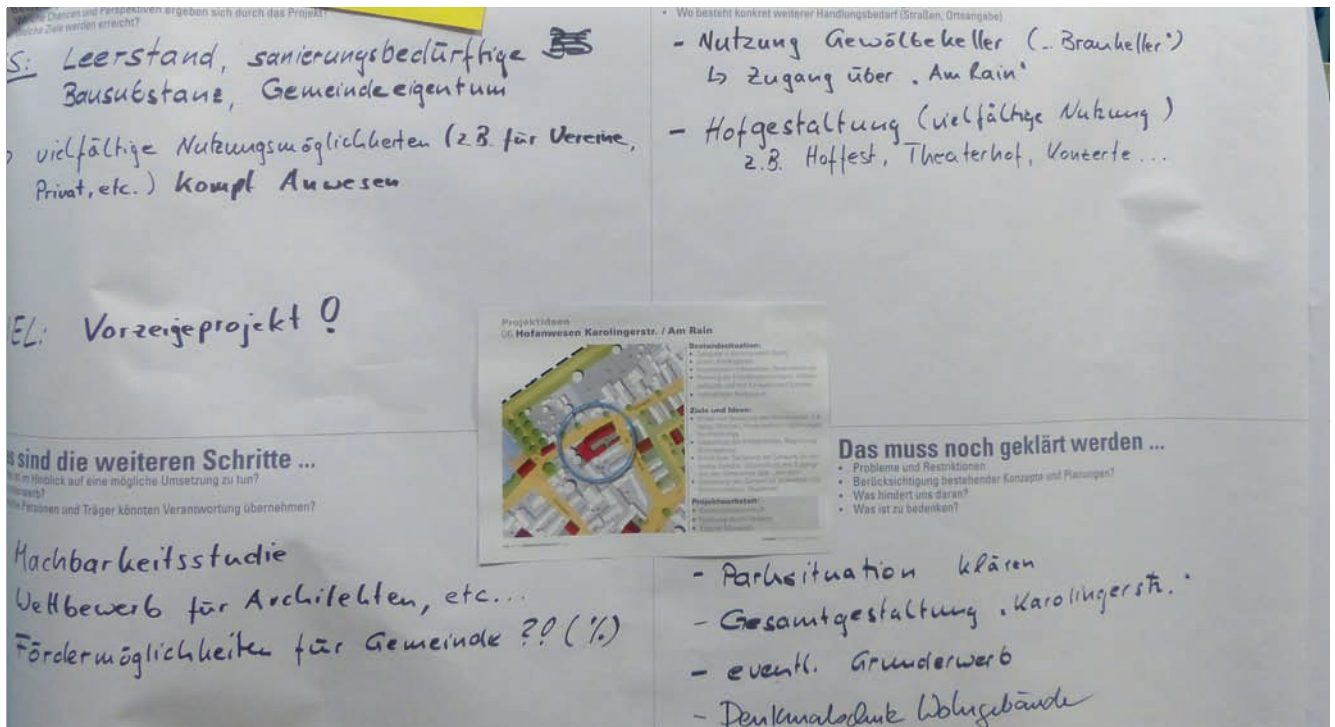 Chancen und Perspektiven ergeben sich durch das Projekt?
Ziele werden erreicht?
S: Leerstand, sanierungsbedürftige
Bausubstanz, Gemeindeeigentum
vielfältige Nutzungsmöglichkeiten (z.B. für Vereine,
Privat, etc.) kompl Anwesen
EL: Vorzeigeprojekt !
• Wo besteht konkret weiterer Handlungsbedarf (Straßen, Ortsangabe)
- Nutzung Gewölbekeller („Braukeller“)
↳ Zugang über „Am Rain“
- Hofgestaltung (vielfältige Nutzung)
z.B. Hoffest, Theaterhof, Konzerte...
Projektideen
06 Hofanwesen Karolingerstr. / Am Rain
Bestandssituation:
Ziele und Ideen:
Projektwerkstatt:
s sind die weiteren Schritte ...
im Hinblick auf eine mögliche Umsetzung zu tun?
Personen und Träger könnten Verantwortung übernehmen?
Machbarkeitsstudie
Wettbewerb für Architekten, etc...
Fördermöglichkeiten für Gemeinde ?! (%)
Das muss noch geklärt werden ...
• Probleme und Restriktionen
• Berücksichtigung bestehender Konzepte und Planungen?
• Was hindert uns daran?
• Was ist zu bedenken?
- Parksituation klären
- Gesamtgestaltung „Karolingerstr.“
- eventl. Grunderwerb
- Denkmalschutz Wohngebäude